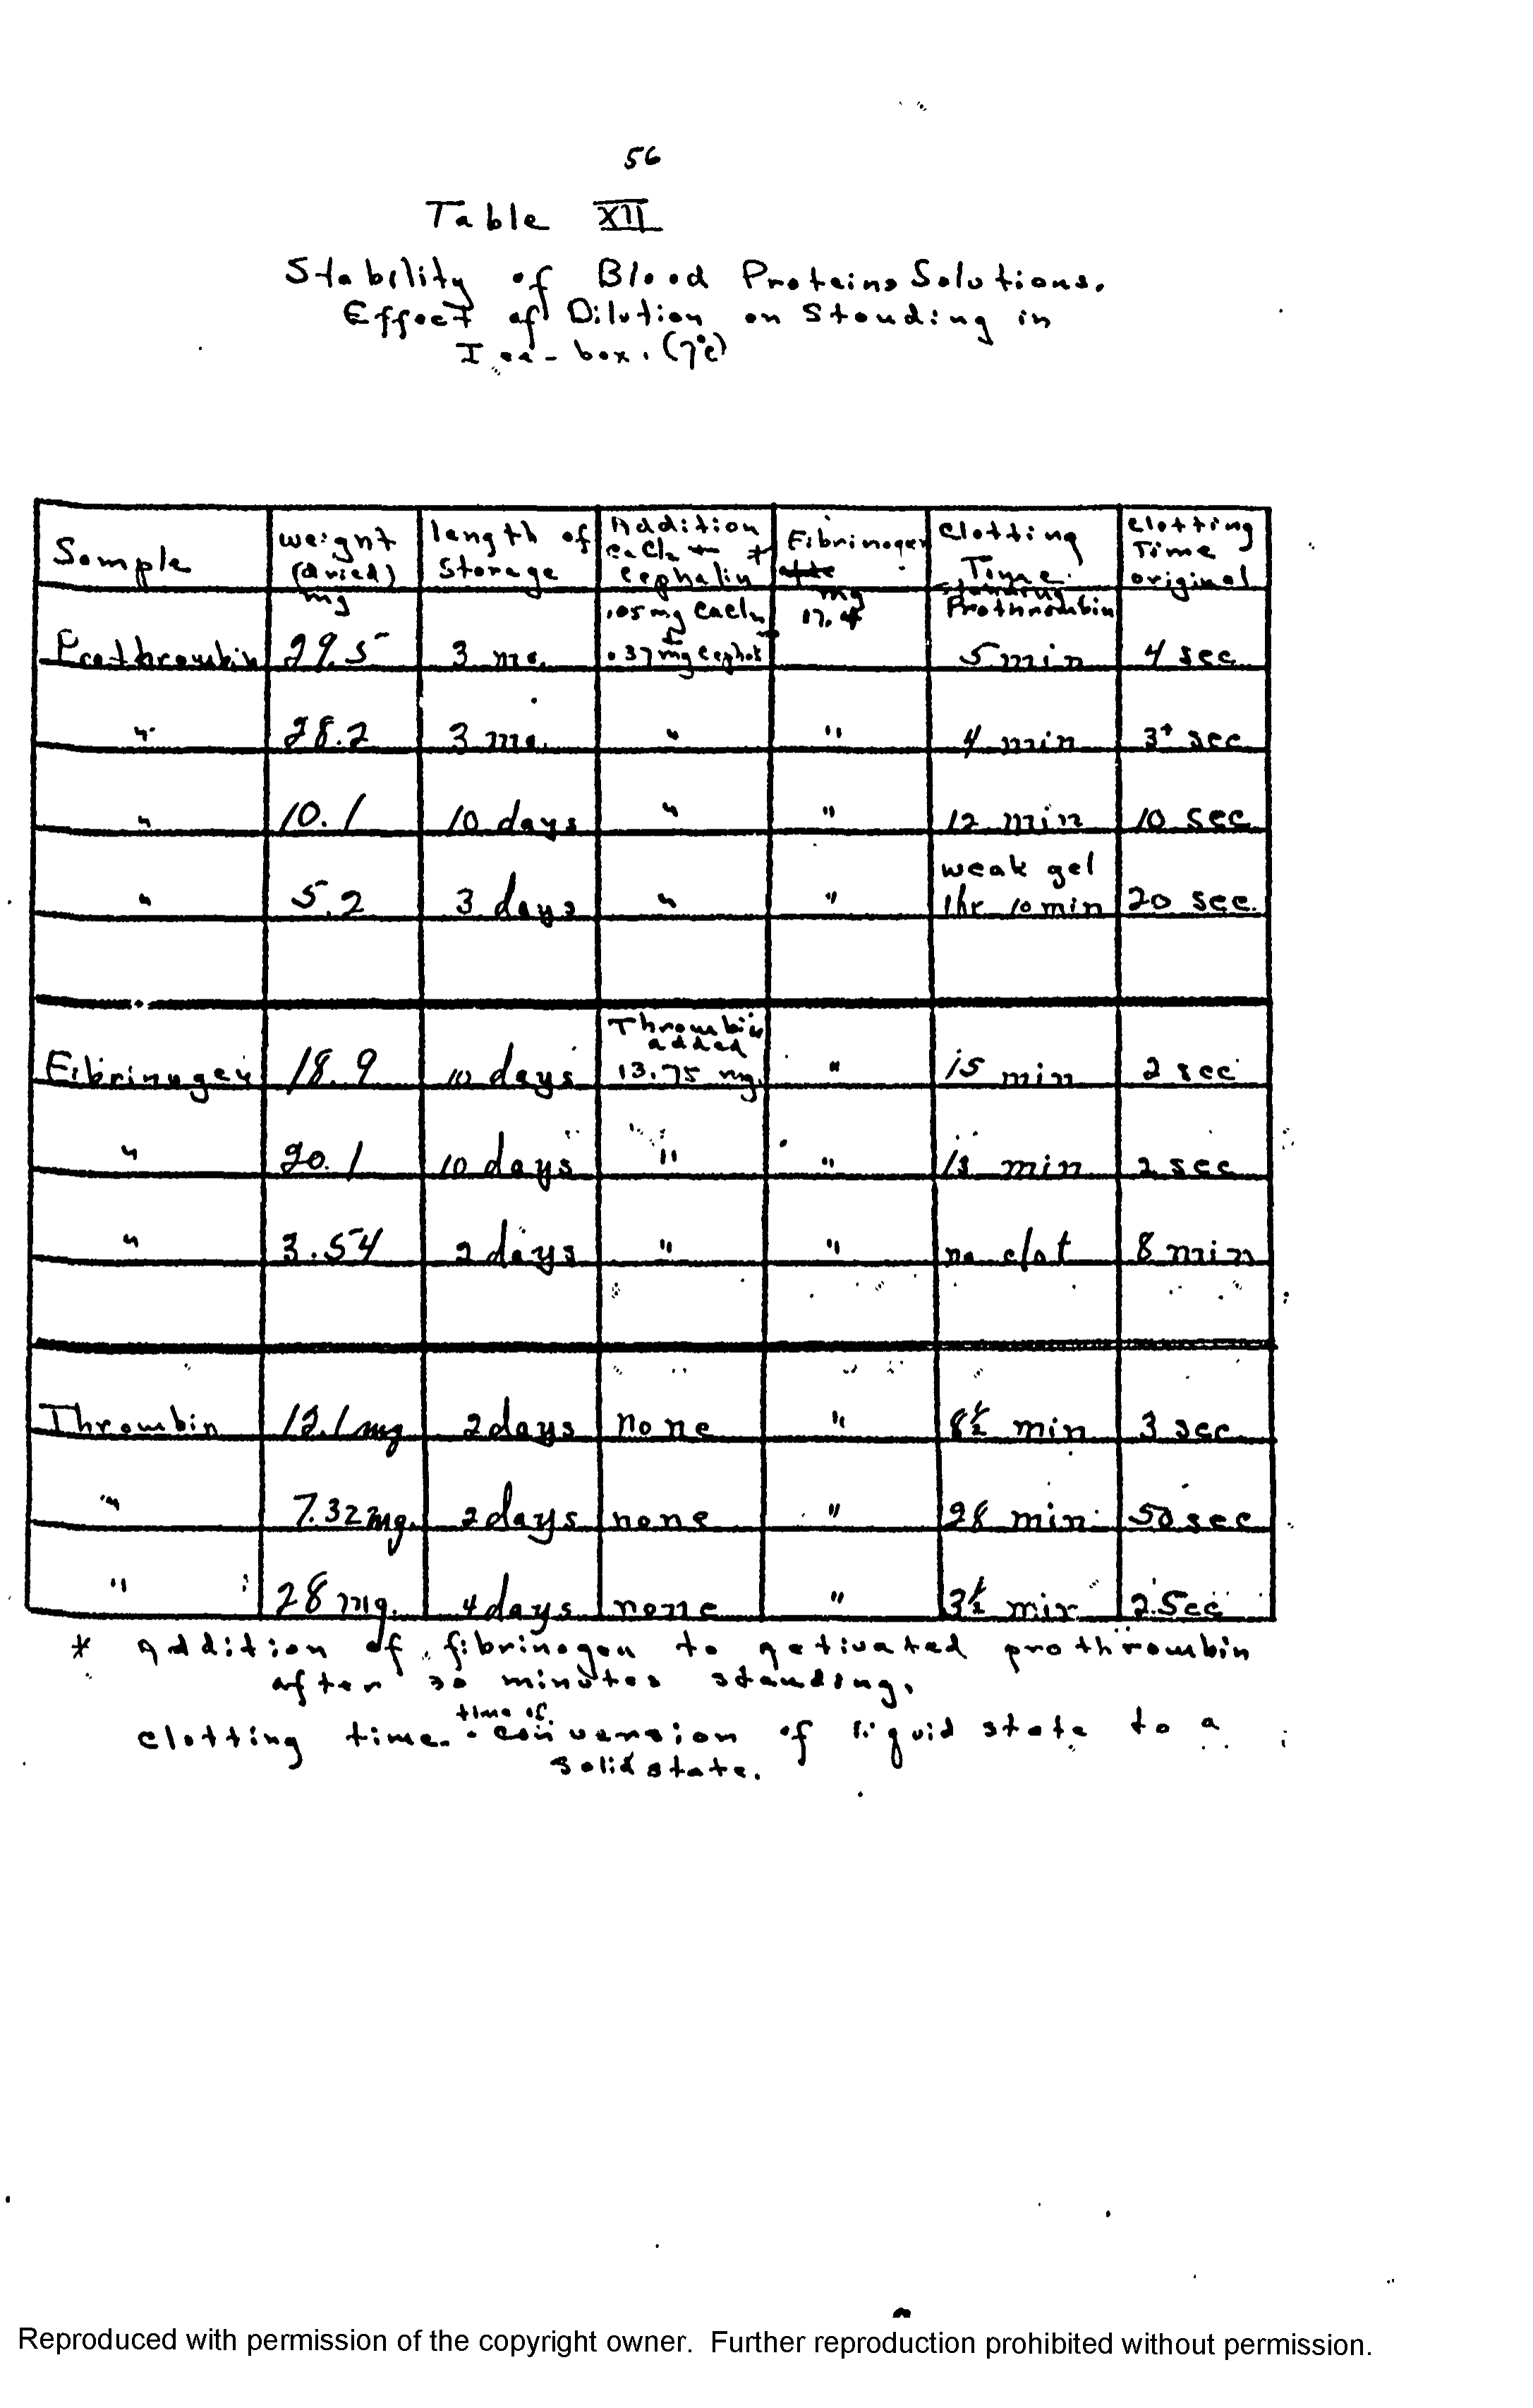 56
Table XII
Stability of Blood Proteins Solutions.
Effect of Dilution on Standing in
Ice-box. (7°C)
Sample | weight (dried) mg | length of Storage | Addition CaCl2 + cephalin * | Fibrinogen mg | Clotting Time Standing Prothrombin | Clotting Time original
Prothrombin | 29.5 | 3 mo. | .05 mg CaCl2 + .37 mg Cephal | 17.4 | 5 min | 4 sec
" | 28.2 | 3 mo. | " | " | 4 min | 3+ sec
" | 10.1 | 10 days | " | " | 12 min | 10 sec
" | 5.2 | 3 days | " | " | weak gel 1hr 10 min | 20 sec.
Fibrinogen | 18.9 | 10 days | Thrombin added 13.75 mg. | " | 15 min | 2 sec
" | 20.1 | 10 days | " | " | min | 2 sec
" | 3.54 | 2 days | " | " | no clot | 8 min
Thrombin | 12.1 mg | 2 days | none | " | 8½ min | 3 sec
" | 7.32 mg. | 2 days | none | " | 28 min | 50 sec
" | 28 mg. | 4 days | none | " | 3½ min | 2 Sec
* Addition of fibrinogen to activated prothrombin
after 30 minutes standing.
clotting time. time of conversion of liquid state to a
solid state.
Reproduced with permission of the copyright owner. Further reproduction prohibited without permission.